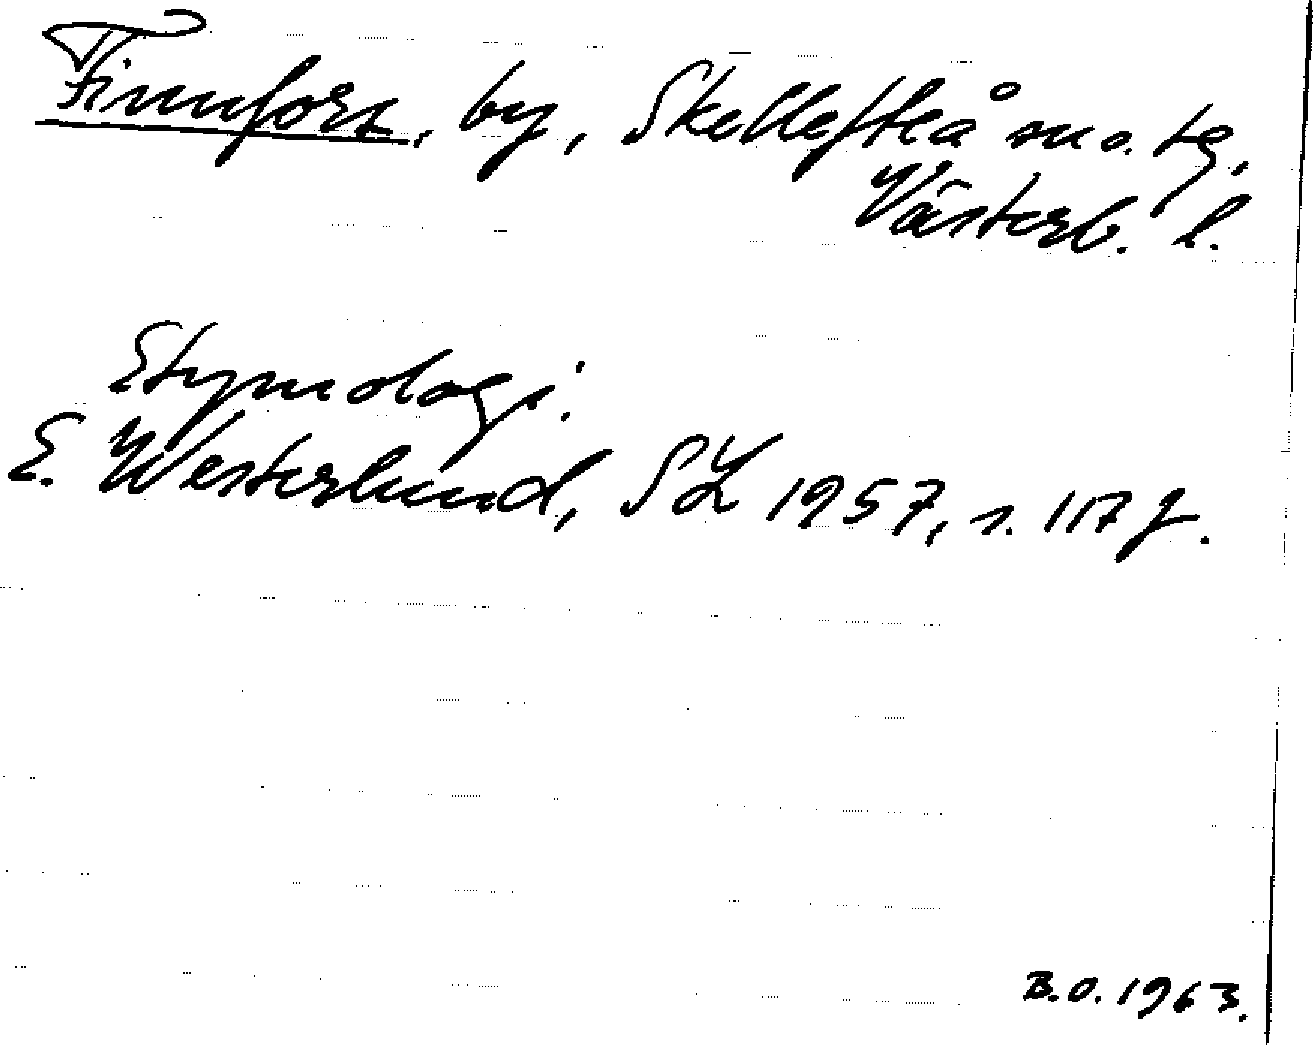 Finnfors, by, Skellefteå sn o. tg,
Västerb. l.
Etymologi:
E. Westerlund, SL 1957, s. 117 f.
B.O. 1963.